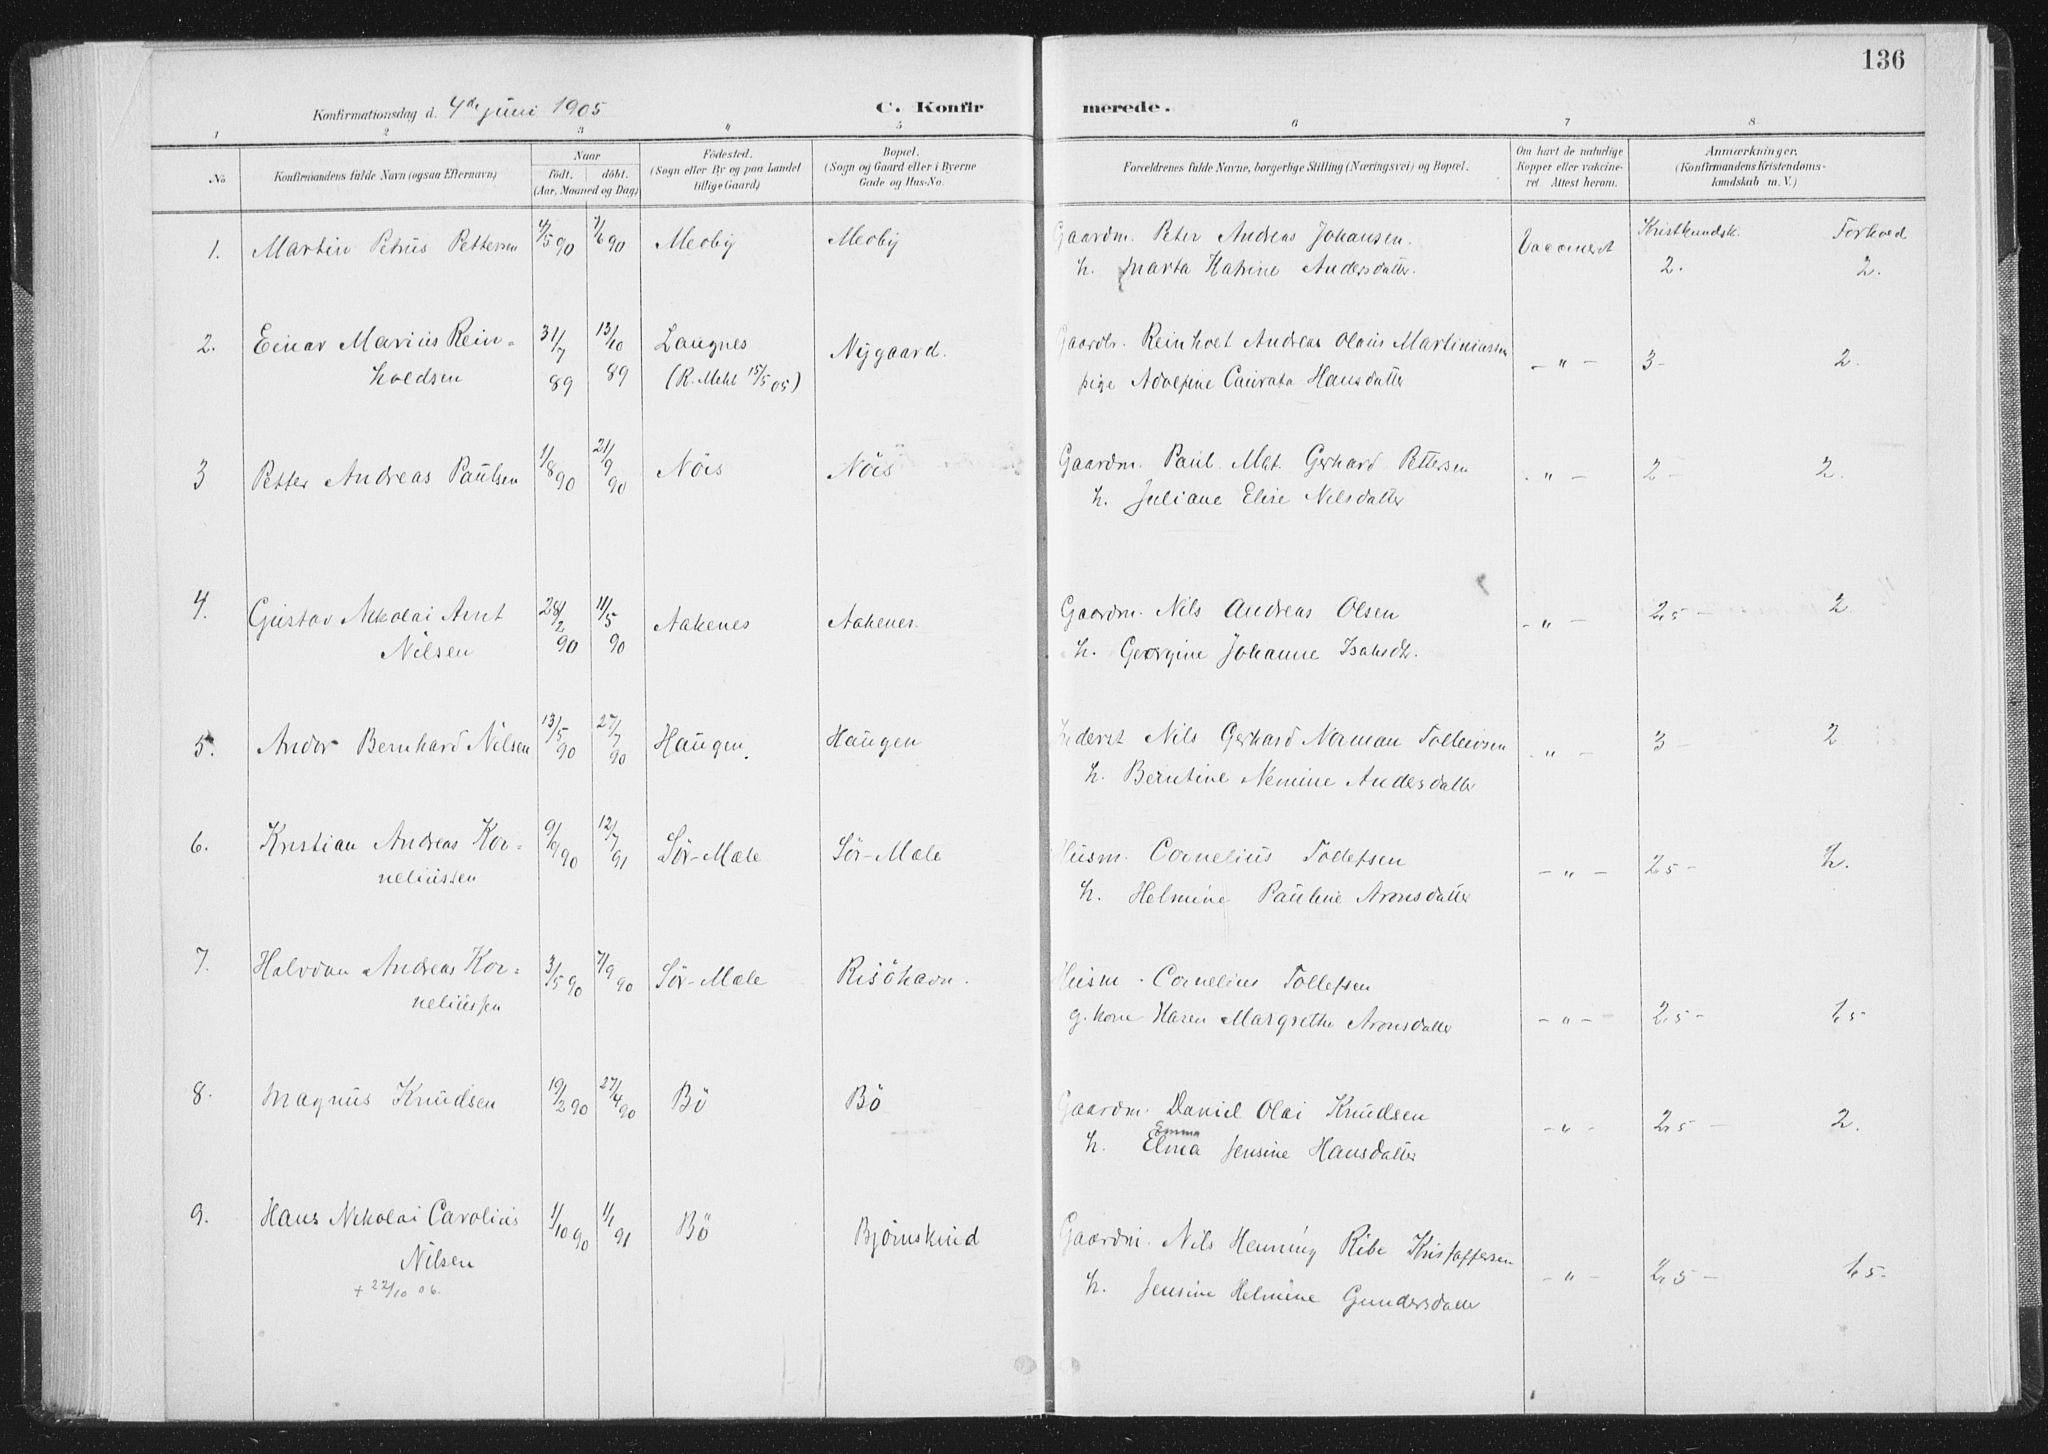 136
Konfirmationsdag d. 4de juni 1905
C. Konfir merede.
1 2 3 4 5 6 7 8
No
Konfirmandens fulde Navn (ogsaa Efternavn)
Naar
Födt. döbt.
(Aar, Maaned og Dag)
Födested.
(Sogn eller By og paa Landet
tillige Gaard)
Bopæl.
(Sogn og Gaard eller i Byerne
Gade og Hus-No.
Forældrenes fulde Navne, borgerlige Stilling (Næringsvei) og Bopæl.
Om havt de naturlige
Kopper eller vakcine-
ret. Attest herom.
Anmærkninger.
(Konfirmandens Kristendoms-
kundskab m. V.)
Kristkundsk. Forhold
1. Martin Petrus Pettersen 4/5 90 7/6 90 Meoby Meoby Gaardm. Peter Andreas Johansen. Vaccineret 2. 2.
h. Marta Katrine Andersdatter.
2. Einar Marius Rein= 31/7 89 13/10 89 Langnes Nygaard. Gaardbr. Reinholt Andreas Olaus Martiniussen - " - 3- 2.
holdsen (R. Mehl 15/5 05) pige Adolfine Caurata Hansdatter
3 Petter Andreas Paulsen 1/8 90 21/9 90 Nöis Nöis Gaardm. Paul Mat. Gerhard Pettersen - " - 2- 2.
h. Juliane Elise Nilsdatter
4. Gustav Nikolai Arnt 28/2 90 11/5 90 Aakenes Aakenes. Gaardm. Nils Andreas Olsen - " - 2,5 - 2.
Nilsen h. Georgine Johanne Isaksdt.
5. Andor Bernhard Nilsen 13/5 90 27/7 90 Haugen. Haugen Nils Gerhard Norman Tollevsen - " - 3 - 2
h. Berntine Nemine Andersdatter
6. Kristian Andreas Kor= 9/9 90 12/7 91 Sör-Mæle Sör-Mæle Husm. Cornelius Tollefsen - " - 2,5 - 2.
neliussen h. Helmine Pauline Aronsdatter
7. Halvdan Andreas Kor= 3/5 90 7/9 90 Sör-Mæle Risöhavn. Husm. Cornelius Tollefsen
neliussen g. kone Karen Margrethe Aronsdatter - " - 2,5 - 1,5
8. Magnus Knudsen 19/2 90 27/4 90 Bö Bö Gaardm. Daniel Olai Knudsen - " - 2,5 - 2.
Emma
h. Elma Jensine Hansdatter
9. Hans Nikolai Carolius 1/10 90 1/1 91 Bö Bjørnskind Gaardm. Nils Henning Ribe Kristoffersen - " - 2,5 - 1,5-
Nilsen h. Jensine Helmine Gundersdatter
+ 22/10 06.